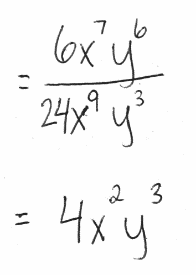 = 6x⁷y⁶ / 24x⁹y³
= 4x²y³